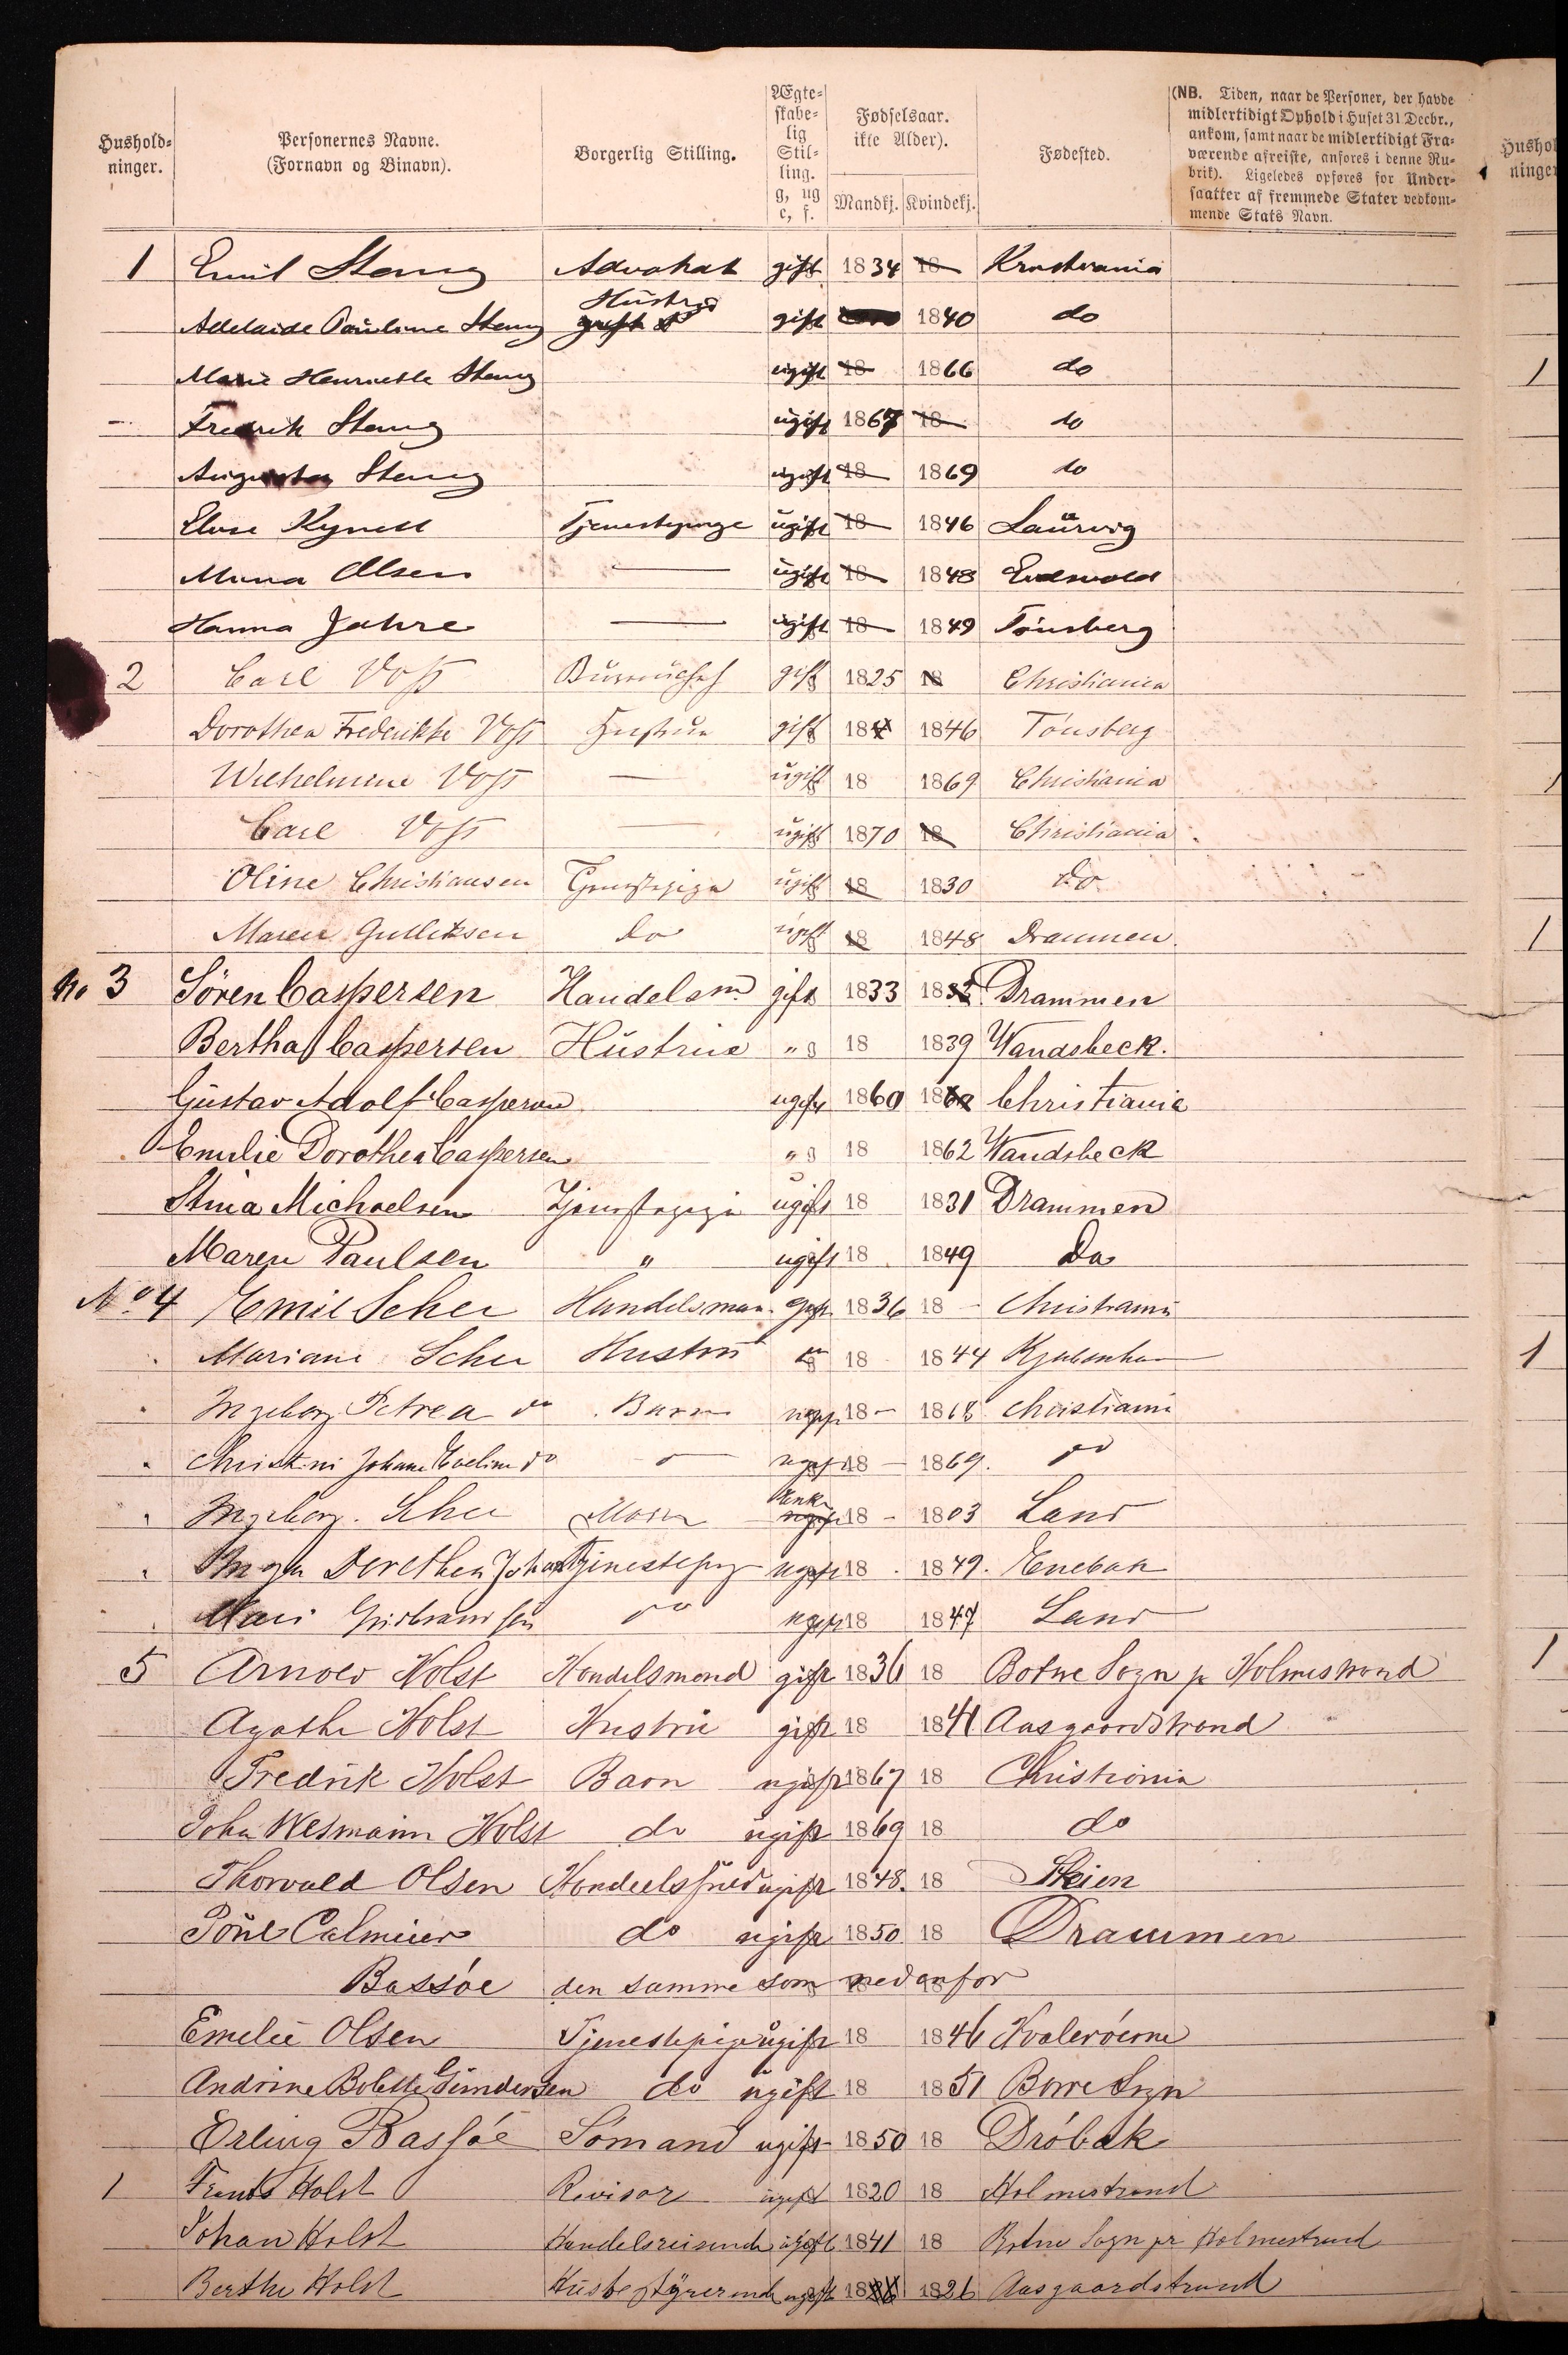 Hushold-
ninger.
Personernes Navne.
(Fornavn og Binavn).
Borgerlig Stilling.
Ægte-
skabe-
lig
Stil-
ling.
g, ug
e, f.
Fødselsaar.
ikke Alder).
Mandkj. Kvindekj.
Fødested.
(NB. Tiden, naar de Personer, der havde
midlertidigt Ophold i Huset 31 Decbr.,
ankom, samt naar de midlertidigt Fra-
værende afreiste, anføres i denne Ru-
brik). Ligeledes opføres for Under-
saatter af fremmede Stater vedkom-
mende Stats Navn.
1 Emil Stang Advokat gift 1834 18 Kristiania
Adelaide Pauline Stang Hustru gift 1840 do
Marie Henriette Stang ugift 18 1866 do
Fredrik Stang ugift 1867 18 do
Augusta Stang ugift 18 1869 do
Elise Tjenestepige ugift 18 1846 Laurvig
Olsen — ugift 18 1848 Eidsvold
Hanna Jahre — ugift 18 1849 Tönsberg
2 Carl Voss gift 1825 18 Christiania
Dorothea Frederikke Voss Hustru gift 18 1846 Tönsberg
Wilhelmine Voss — ugift 18 1869 Christiania
Carl Voss — ugift 1870 18 Christiania
Oline Christiansen Tjenestepige ugift 18 1830 Do
Maren Gulliksen do ugift 18 1848 Drammen
No 3 Sören Caspersen Handelsm. gift 1833 18 Drammen
Bertha Caspersen Hustrue " g 18 1839 Wandsbeck.
Gustav Adolf Caspersen ugift 1860 18 Christiania
Emilie Dorothea Caspersen " g 18 1862 Wandsbeck
Stina Michaelsen Tjenestepige ugift 18 1831 Drammen
Maren Paulsen " ugift 18 1849 Do
No 4 Emil Scheu Handelsman. Gift 1836 18 – Christiania
Mariane Scheu Hustru do 18 1844 Kjøbenhavn
Ingeborg Petrea do Barn ugift 18 – 1868 Christiania
Johane Eveline do ugift 18 – 1869. do
Ingeborg Scheu Moder Enke 18 – 1803 Land
Dorethea Tjenestepig ugift 18 1849. Enebak
Mari Gudbrandsen do ugift 18 1847 Land
5 Arnold Holst Handelsmand gift 1836 18 Botne Sogn pr Holmestrand
Agathe Holst Hustru gift 18 1841 Aasgaardstrand
Fredrik Holst Barn ugift 1867 18 Christiania
John Wesmann Holst do ugift 1869 18 do
Thorvald Olsen ugift 1848. 18 Skien
Poul Calmeier do ugift 1850 18 Drammen
Bassöe den samme som nedenfor
Emelie Olsen Tjenestepige ugift 18 1846 Hvaleröerne
Andrine Bolette Gundersen do ugift 18 1851 Borre Sogn
Erling Bassöe Sömand ugift 1850 18 Dröbak
1 Frants Holst Revisor ugift 1820 18 Holmestrand
Johan Holst Handelsreisende ugift 1841 18 Botne Sogn pr Holmestrand
Berthe Holst Husbestyrerinde ugift 18 1826 Aasgaardstrand
Hushol
ninger
1
1
1
1
1